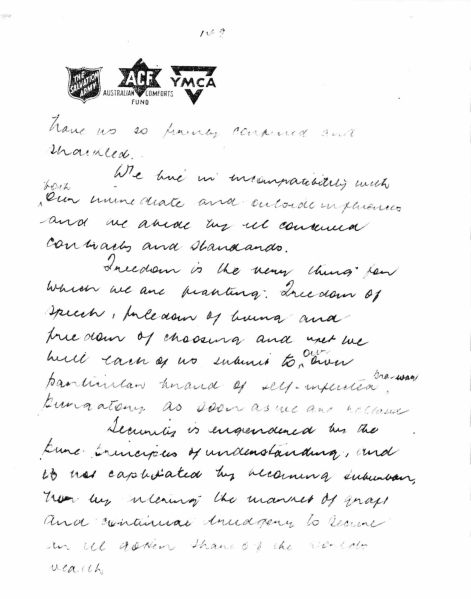 THE SALVATION ARMY
ACF
AUSTRALIAN COMFORTS FUND
YMCA
have us so firmly confined and
shackled.
We live in incompatibility with
both
our immediate and outside influences
and we abide by ill conceived
contracts and standards.
Freedom is the very thing for
which we are fighting. Freedom of
speech, freedom of living and
freedom of choosing and yet we
will each of us submit to our own
particular brand of self-inflicted
purgatory as soon as we are
Security is engendered by the
pure principles of understanding, and
is not captivated by becoming suburban,
nor by the market of graft
and continual trudgery to secure
an ill gotten share of the worlds
wealth